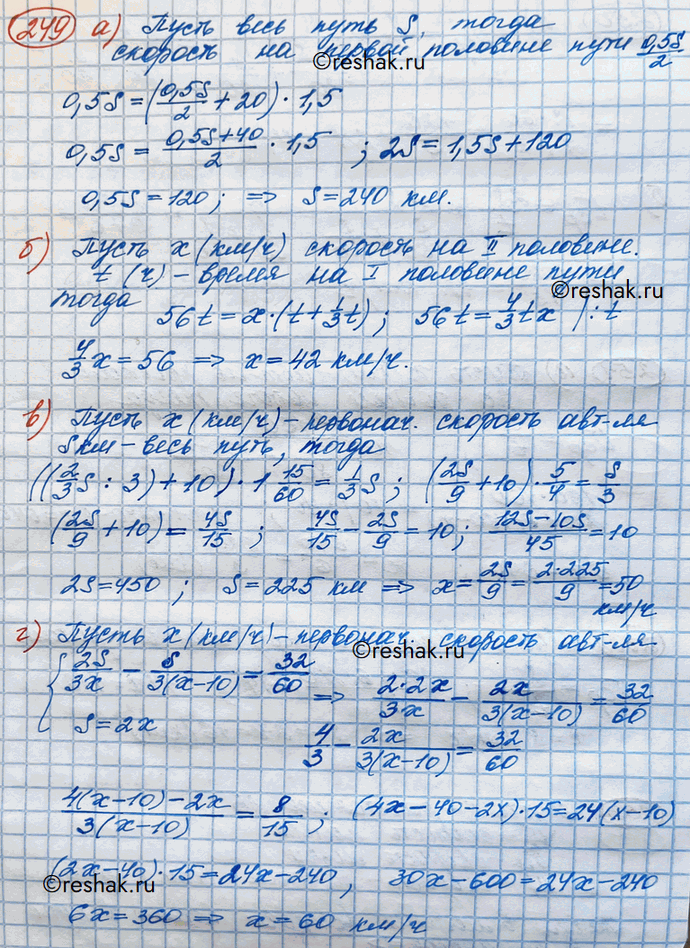 249 а) Пусть весь путь S, тогда
скорость на первой половине пути 0,5S/2
©reshak.ru
0,5S = (0,5S/2 + 20) · 1,5
0,5S = (0,5S+40)/2 · 1,5 ; 2S = 1,5S + 120
0,5S = 120 ; ⇒ S = 240 км.
б) Пусть x (км/ч) скорость на II половине.
t (ч) – время на I половине пути
©reshak.ru
тогда 56t = x · (t + 1/3 t) ; 56t = 4/3 tx | : t
4/3 x = 56 ⇒ x = 42 км/ч.
в) Пусть x (км/ч) – первонач. скорость авт-ля
S км – весь путь, тогда
((2/3 S : 3) + 10) · 1 15/60 = 1/3 S ; (2S/9 + 10) · 5/4 = S/3
(2S/9 + 10) = 4S/15 ; 4S/15 – 2S/9 = 10 ; (12S – 10S)/45 = 10
2S = 450 ; S = 225 км ⇒ x = 2S/9 = 2·225/9 = 50
км/ч
г) Пусть x (км/ч) – первонач. скорость авт-ля
©reshak.ru
{ 2S/3x – S/3(x–10) = 32/60 ⇒ 2·2x/3x – 2x/3(x–10) = 32/60
S = 2x
4/3 – 2x/3(x–10) = 32/60
(4(x–10) – 2x)/3(x–10) = 8/15 ; (4x – 40 – 2x) · 15 = 24(x–10)
(2x–40) · 15 = 24x – 240 , 30x – 600 = 24x – 240
©reshak.ru
6x = 360 ⇒ x = 60 км/ч